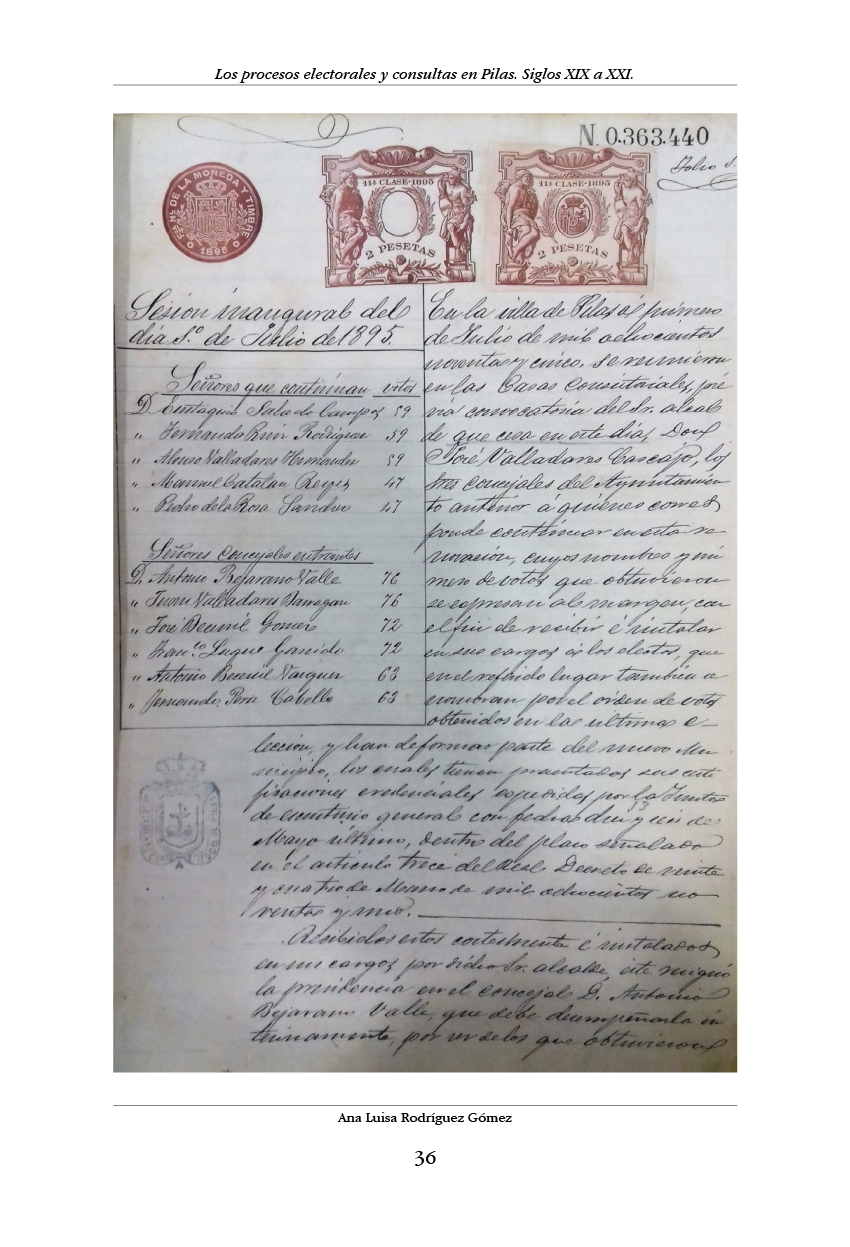 Los procesos electorales y consultas en Pilas. Siglos XIX a XXI.
N. 0.363.440
Folio 1.
FCA. NL. DE LA MONEDA Y TIMBRE
1895
11ª CLASE·1895
2 PESETAS
11ª CLASE·1895
2 PESETAS
Sesion inaugural del
día 1.º de Julio de 1895.
Señores que continúan votos
D. Eustaquio Salado Campos 59
" Fernando Ruiz Rodriguez 59
" Alonso Valladares Hernandez 59
" Manuel Catalan Reyes 47
" Pedro de la Rosa Sanchez 47
Señores Concejales entrantes
D. Antonio Bejarano Valle 76
" Juan Valladares Barragan 76
" José Becerril Gomez 72
" Franco Luque Garrido 72
" Antonio Becerril Vazquez 63
" Fernando Perez Cabello 63
En la villa de Pilas á primero
de Julio de mil ochocientos
noventa y cinco, se reunieron
en las Casas Consistoriales, pré
via convocatoria del Sr. alcal
de que cesa en este día, Don
José Valladares Cascajo, los
tres concejales del Ayuntamien
to anterior á quienes corres
ponde continuar en esta re
novacion, cuyos nombres y nú
mero de votos que obtuvieron
se espresan al margen, con
el fin de recibir é instalar
en sus cargos á los electos, que
en el referido lugar también se
nombran por el orden de votos
obtenidos en las ultimas e-
leccion, y han de formar parte del nuevo Mu
nicipio, los cuales tienen presentados sus certi
ficaciones credenciales espedidas por la Junta
de escrutinio general con fechas diez y seis de
Mayo último, dentro del plazo señalado
en el articulo trece del Real Decreto de veinte
y cuatro de Marzo de mil ochocientos no
venta y uno.
Recibidos estos cortesmente é instalados
en sus cargos por dicho Sr. alcalde, este resignó
la presidencia en el concejal D. Antonio
Bejarano Valle, que debe desempeñarla in
terinamente, por ser de los que obtuvieron
Ana Luisa Rodríguez Gómez
36